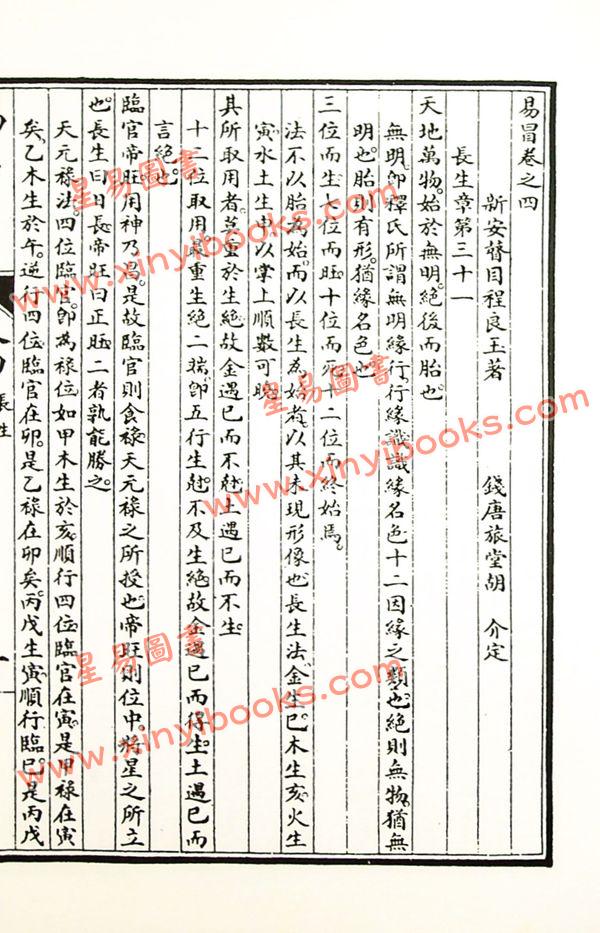 易冒卷之四
新安瞽目程良玉著　錢唐旅堂胡　介定
長生章第三十一
天地萬物。始於無明。絕後而胎也。
無明。即釋氏所謂無明緣行。行緣識。識緣名色。十二因緣之類也。絕則無物。猶無
明也。胎則有形。猶緣名色也。
三位而生。七位而旺。十位而死。十二位而終始焉。
法不以胎為始。而以長生為始者。以其未現形像也。長生法。金生巳。木生亥。火生
寅。水土生申。以掌上順數可曉。
其所取用者。莫重於生絕。故金遇巳而不尅。土遇巳而不生。
十二位取用最重生絕二端。即五行生尅。不及生絕。故金遇巳而得生。土遇巳而
言絕也。
臨官帝旺。用神乃昌。是故臨官則食祿。天元祿之所授也。帝旺則位中。將星之所立
也。長生曰日長。帝旺曰正旺。二者孰能勝之。
天元祿法。四位臨官。即為祿位。如甲木生於亥。順行四位。臨官在寅。是甲祿在寅
矣。乙木生於午。逆行四位。臨官在卯。是乙祿在卯矣。丙戊生寅。順行臨巳。是丙戊
長生
星易圖書
www.xinyibooks.com
星易圖書
www.xinyibooks.com
星易圖書
www.xinyibooks.com